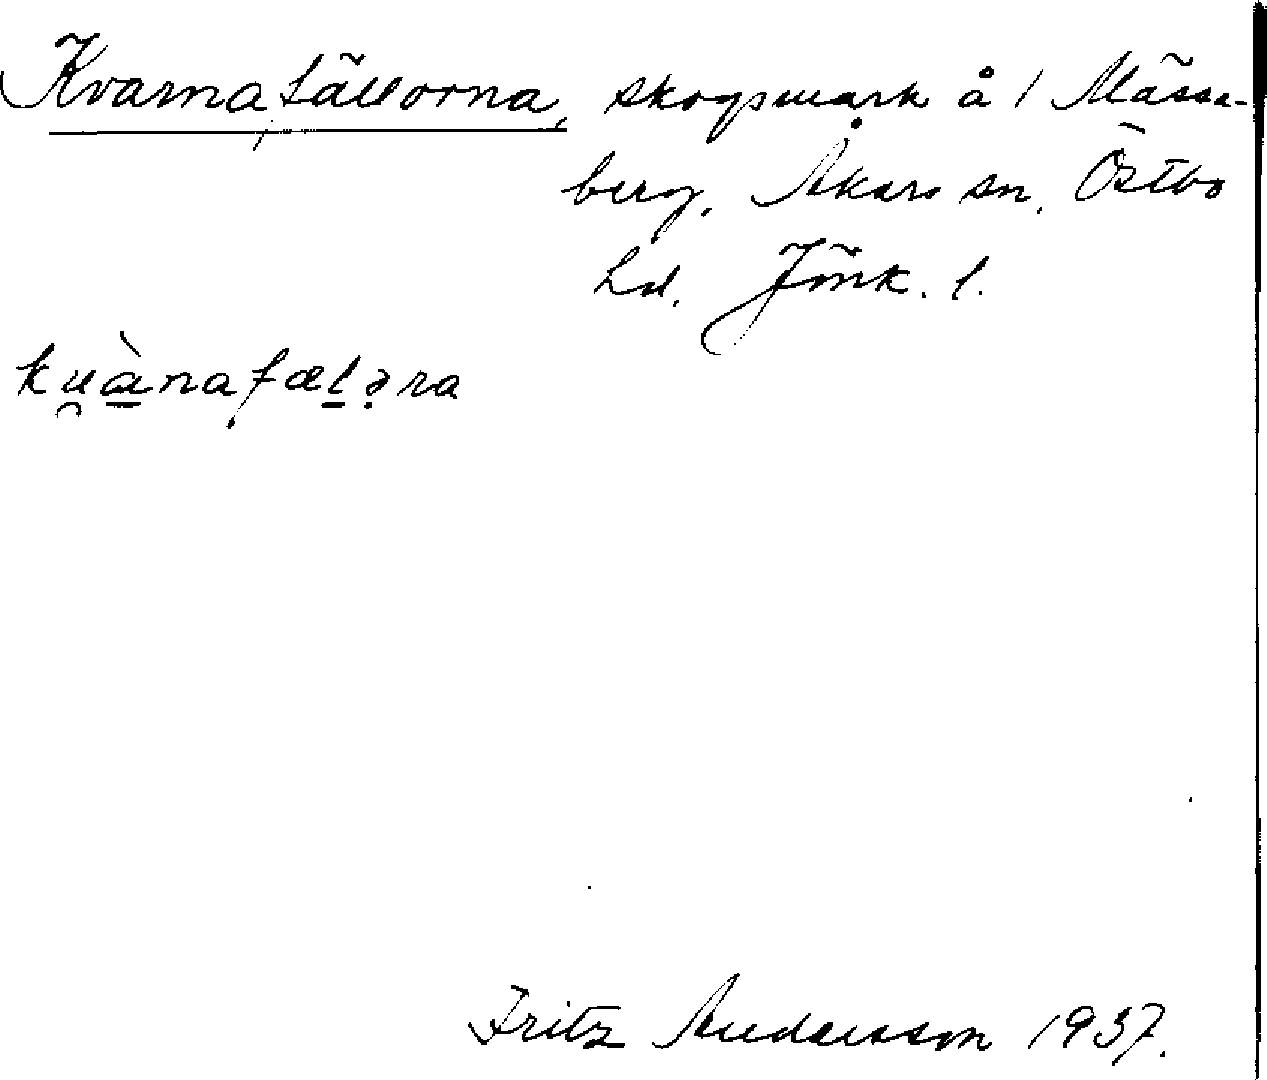 Kvarnafällorna, skogsmark å 1 Mässe-
berg, Åkers sn, Östbo
hd. Jönk. l.
ku̯ànafælə̣ra
Fritz Andersson 1937.